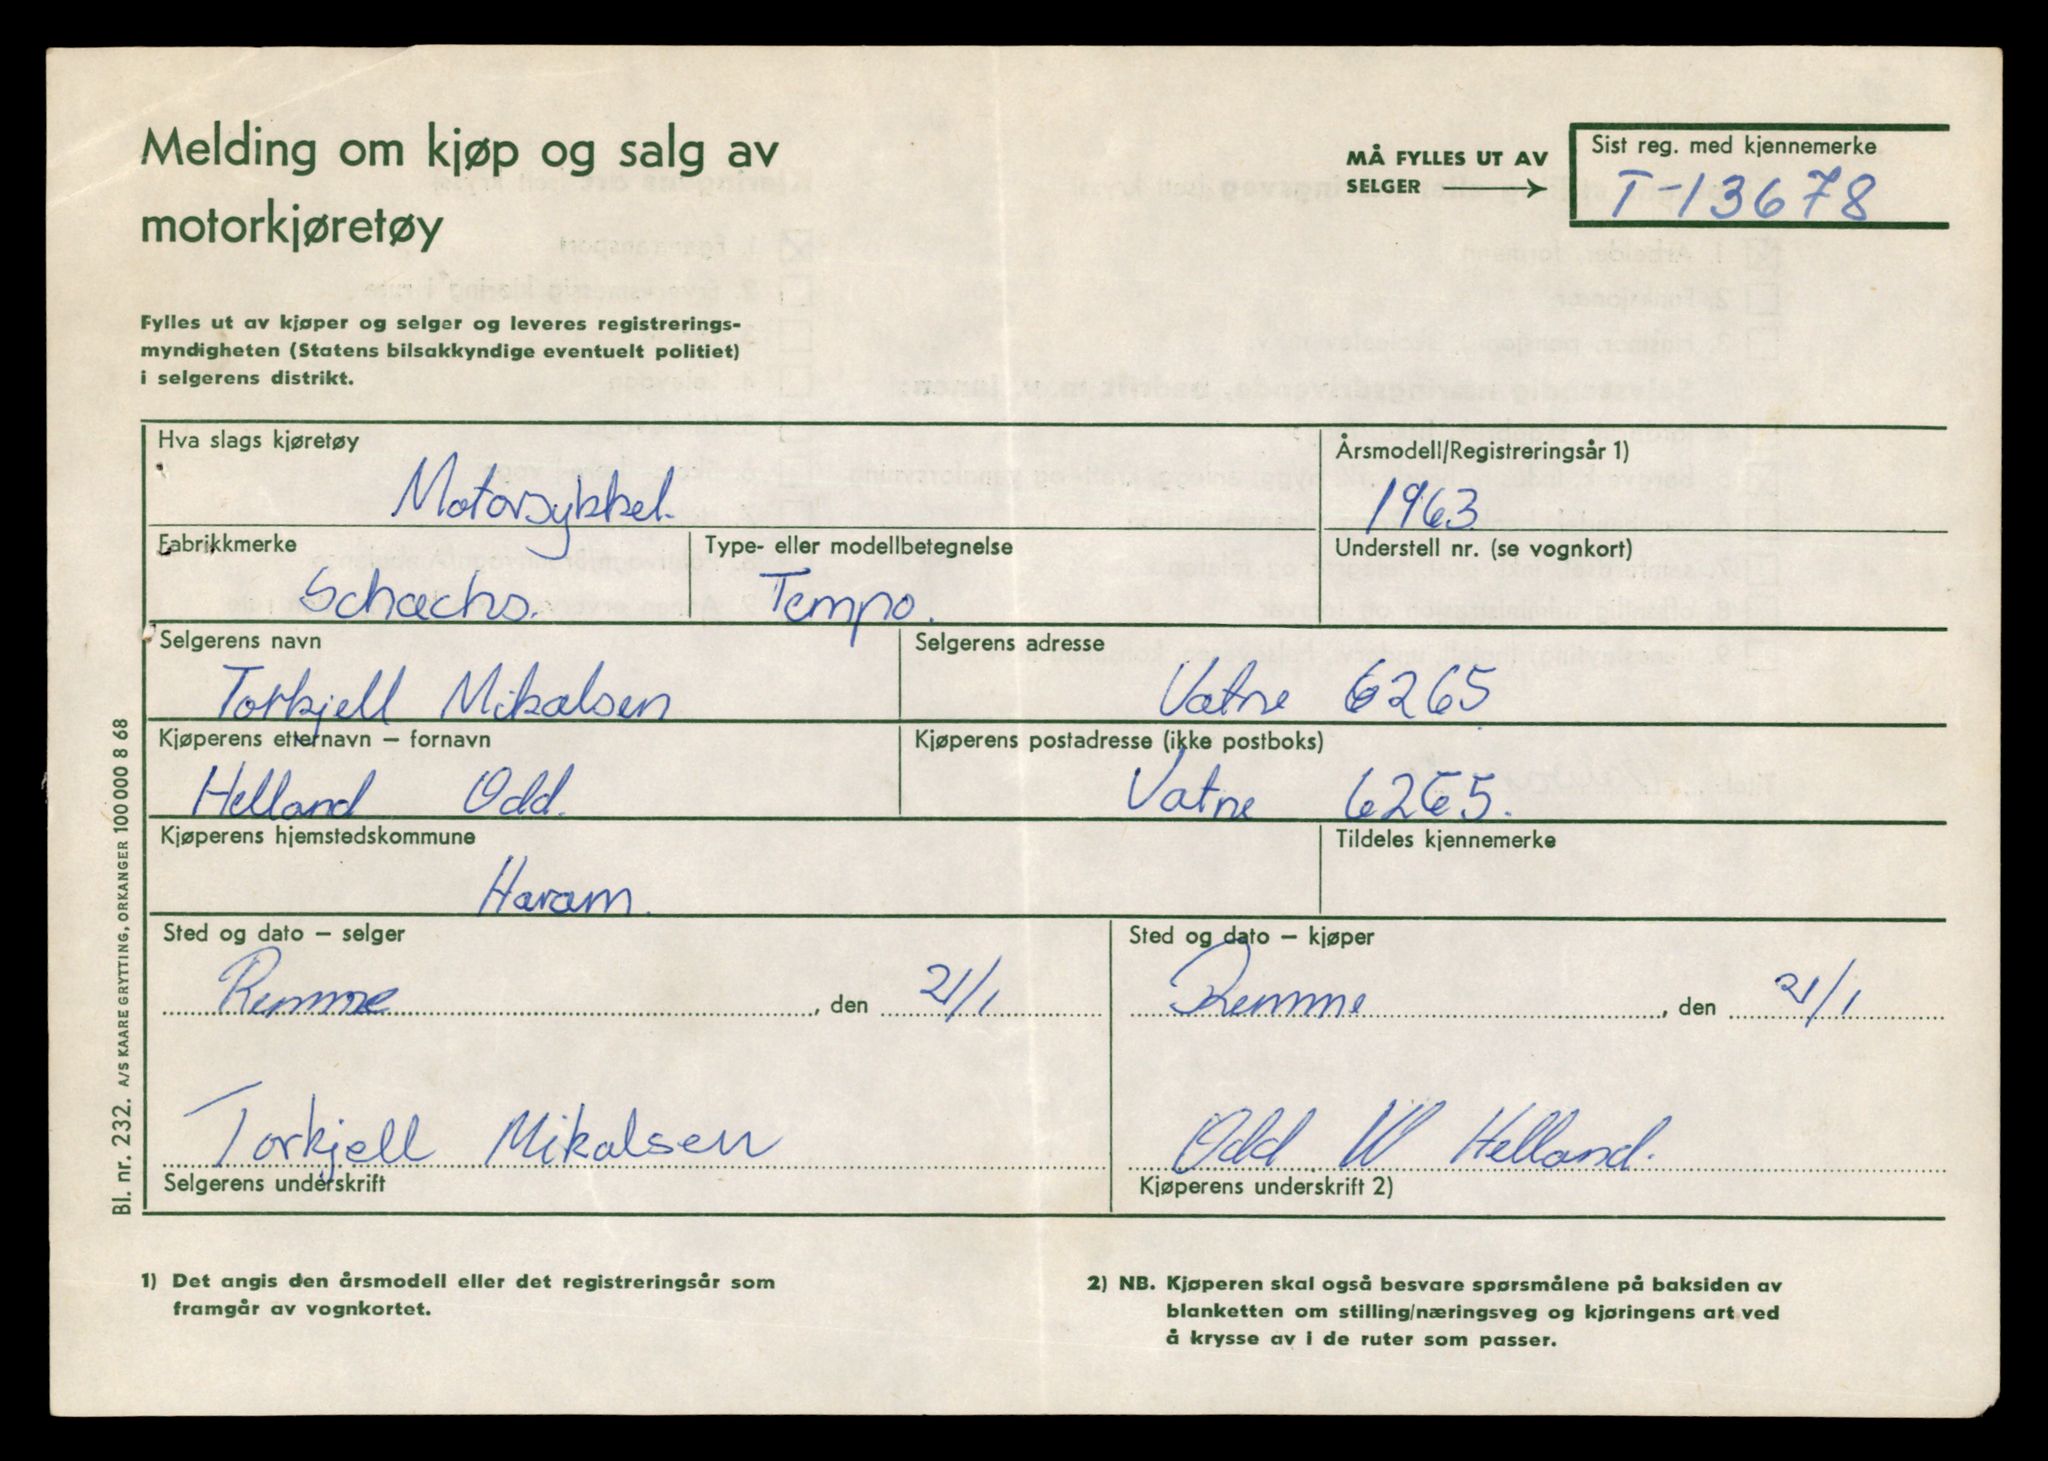 Melding om kjøp og salg av
motorkjøretøy
MÅ FYLLES UT AV
SELGER
Sist reg. med kjennemerke
T-13678
Fylles ut av kjøper og selger og leveres registrerings-
myndigheten (Statens bilsakkyndige eventuelt politiet)
i selgerens distrikt.
Hva slags kjøretøy
Motorsykkel.
Årsmodell/Registreringsår 1)
1963
Fabrikkmerke
Schachs.
Type- eller modellbetegnelse
Tempo.
Understell nr. (se vognkort)
Selgerens navn
Torkjell Mikalsen
Selgerens adresse
Vatne 6265
Kjøperens etternavn – fornavn
Helland Odd.
Kjøperens postadresse (ikke postboks)
Vatne 6265.
Kjøperens hjemstedskommune
Haram.
Tildeles kjennemerke
Sted og dato – selger
Remme, den 21/1
Sted og dato – kjøper
Remme, den 21/1
Torkjell Mikalsen
Selgerens underskrift
Odd W Helland.
Kjøperens underskrift 2)
1) Det angis den årsmodell eller det registreringsår som
framgår av vognkortet.
2) NB. Kjøperen skal også besvare spørsmålene på baksiden av
blanketten om stilling/næringsveg og kjøringens art ved
å krysse av i de ruter som passer.
Bl. nr. 232. A/S KAARE GRYTTING, ORKANGER 100 000 8 68